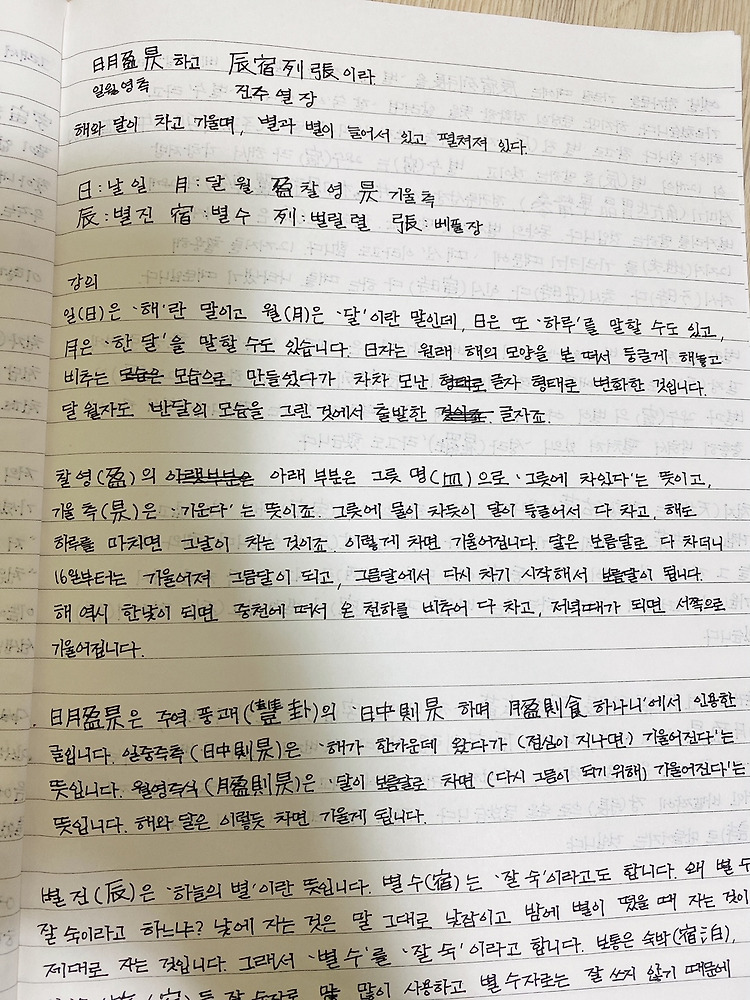 日月盈昃 하고 辰宿列張이라
일월영측 진수열장
해와 달이 차고 기울며, 별과 별이 늘어서 있고 펼쳐져 있다.
日:날일 月:달월 盈찰영 昃기울측
辰:별진 宿:별수 列:벌릴렬 張:베풀장
강의
일(日)은 '해'란 말이고 월(月)은 '달'이란 말인데, 日은 또 '하루'를 말할 수도 있고,
月은 '한 달'을 말할 수도 있습니다. 日자는 원래 해의 모양을 본떠서 둥글게 해놓고
비추는 모습으로 만들었다가 차차 모난 글자 형태로 변화한 것입니다.
달 월자도 반달의 모습을 그린 것에서 출발한 글자죠.
찰 영(盈)의 아래 부분은 그릇 명(皿)으로 '그릇에 차있다'는 뜻이고,
기울 측(昃)은 '기운다'는 뜻이죠. 그릇에 물이 차듯이 달이 둥글어서 다 차고, 해도
하루를 마치면 그날이 차는 것이죠. 이렇게 차면 기울어집니다. 달은 보름달로 다 차더니
16일부터는 기울어져 그믐달이 되고, 그믐달에서 다시 차기 시작해서 보름달이 됩니다.
해 역시 한낮이 되면 중천에 떠서 온 천하를 비추어 다 차고, 저녁때가 되면 서쪽으로
기울어집니다.
日月盈昃은 주역 풍괘(豊卦)의 '日中則昃 하며 月盈則食 하나니'에서 인용한
글입니다. 일중즉측(日中則昃)은 '해가 한가운데 왔다가 (점심이 지나면) 기울어진다'는
뜻입니다. 월영즉식(月盈則昃)은 '달이 보름달로 차면 (다시 그믐이 되기 위해) 기울어진다'는
뜻입니다. 해와 달은 이렇듯 차면 기울게 됩니다.
별 진(辰)은 '하늘의 별'이란 뜻입니다. 별 수(宿)는 '잘 숙'이라고도 합니다. 왜 별 수
잘 숙이라고 하느냐? 낮에 자는 것은 말 그대로 낮잠이고 밤에 별이 떴을 때 자는 것이
제대로 자는 것입니다. 그래서 '별 수'를 '잘 숙'이라고 합니다. 보통은 숙박(宿泊),
등 잘 숙자로 많이 사용하고 별 수자로는 잘 쓰지 않기 때문에